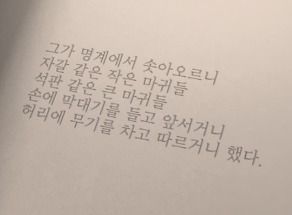 그가 명계에서 솟아오르니
자갈 같은 작은 마귀들
석판 같은 큰 마귀들
손에 막대기를 들고 앞서거니
허리에 무기를 차고 따르거니 했다.